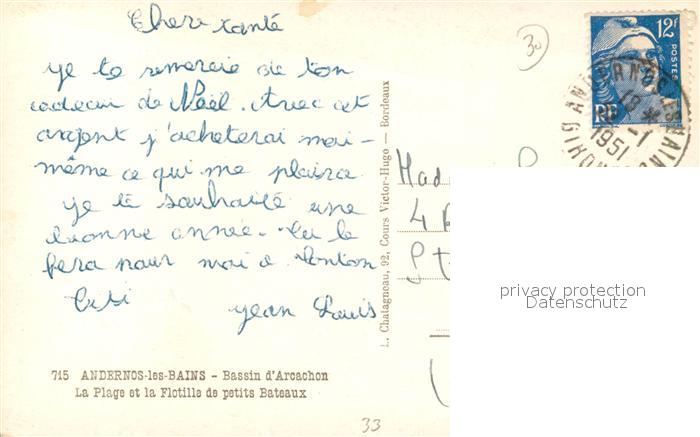 Chere tante
30
12F
POSTES
RF
ANDERNOS-LES-BAINS
18 *
-1
1951
GIRONDE
Je te remercie de ton
cadeau de Noël. Avec cet
argent j'acheterai moi-
même ce qui me plaira.
Je te souhaite une
bonne année. Tu le
fera pour moi a Tonton
Jean Louis
Mad
4
St
L. Chatagneau, 92, Cours Victor-Hugo — Bordeaux
privacy protection
Datenschutz
715 ANDERNOS-les-BAINS - Bassin d'Arcachon
La Plage et la Flotille de petits Bateaux
33